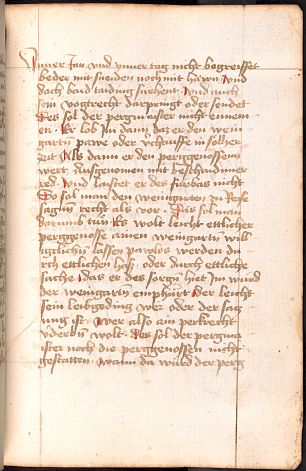 Inner Jar vnd vnner tag nicht begreiffet
beder mit sneiden noch mit hawn Vnd
doch baid taiding suchent Vnd auch
sein vogtrecht darpringt oder sendet
Des sol der pergmaister nicht ennem
en Er lob Im dann daz er den wein
garten pawe oder vchauffe in solher
zeit Als dann er den perggenossenn
wert Ausgenomen mit beschaidner
red Vnd laistet er des furbas nicht
So sol man den weingarten zu Refe
sagnn recht als vor Das sol man
darumb tun Es wolt leicht ettlicher
perggenosse ainen weingartn willi
ngclichn lassen pawlos werden du
rch ettlichen has oder durch ettliche
sache Das er des sorgn hiet Im wurd
der weingartn emphurt Der leicht
sein leibgeding wer oder der sag
ung ist Wer also ain perkrecht
niderlun wolt Des sol der pergma
ister noch die perggenossen nicht
gestatten Wann da wurd der perg